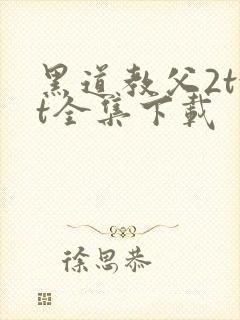 黑道教父2t
t全集下载
徐思恭